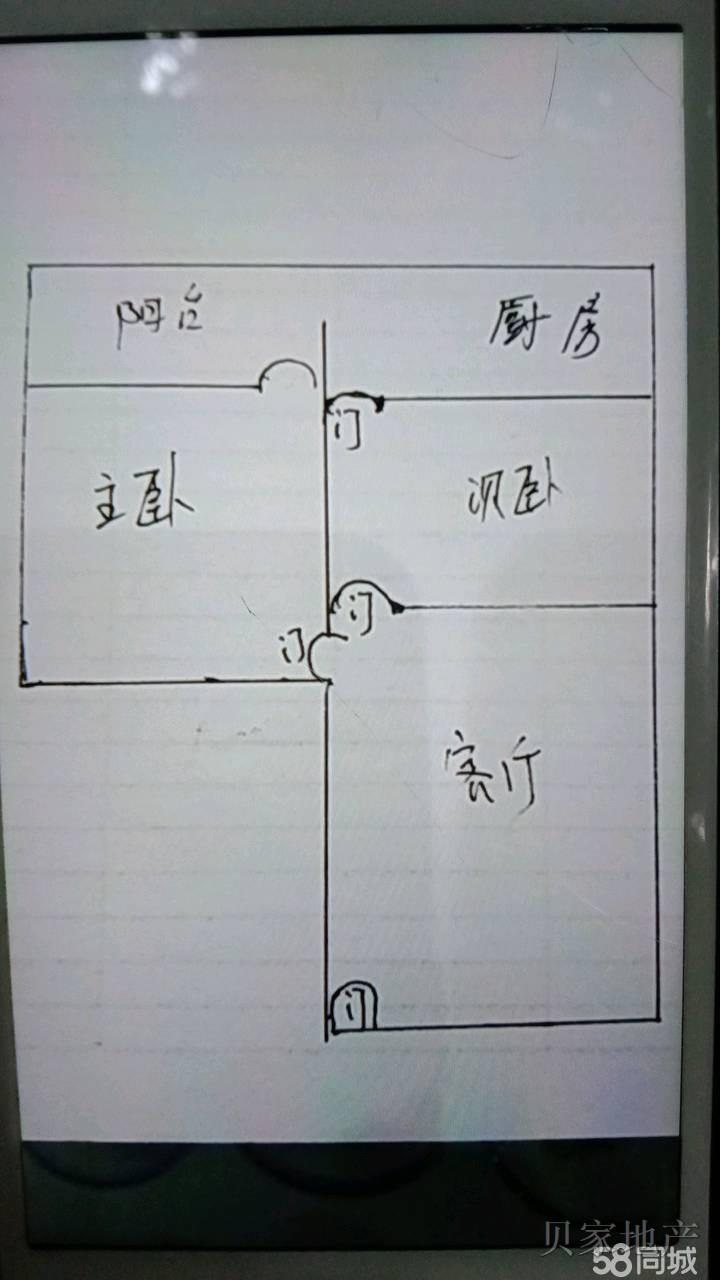 阳台
厨房
门
主卧
次卧
门
门
客厅
门
贝家地产
58同城